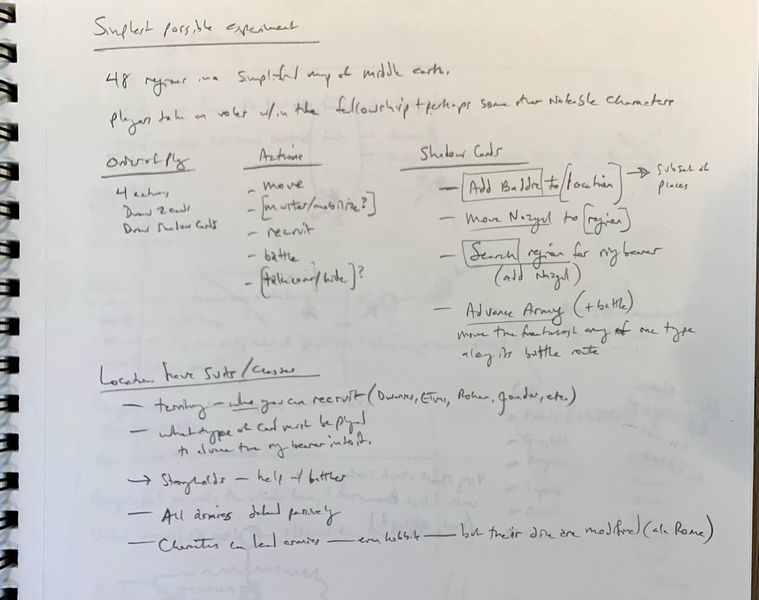 Simplest possible experiment
48 regions in a simplified map of middle earth.
players take on roles w/in the fellowship + perhaps some other notable characters
Order of Play
4 actions
Draw 2 cards
Draw Shadow Cards
Actions
- move
- [muster/mobilize?]
- recruit
- battle
- [take cover/hide]?
Shadow Cards
- Add Baddie to [location] → subset of places
- Move Nazgul to [region]
- Search region for ring bearer
(add Nazgul)
- Advance Army (+ battle)
move the frontmost army of one type
along its battle route
Locations have Suits/Classes
- territory - who you can recruit (Dwarves, Elves, Rohan, Gondor, etc.)
- what type of card must be played
to move the ring bearer into it.
→ Strongholds - help w/ battles
- All armies defend passively
- Characters can lead armies — even hobbits — but their dice are modified (ala Rome)